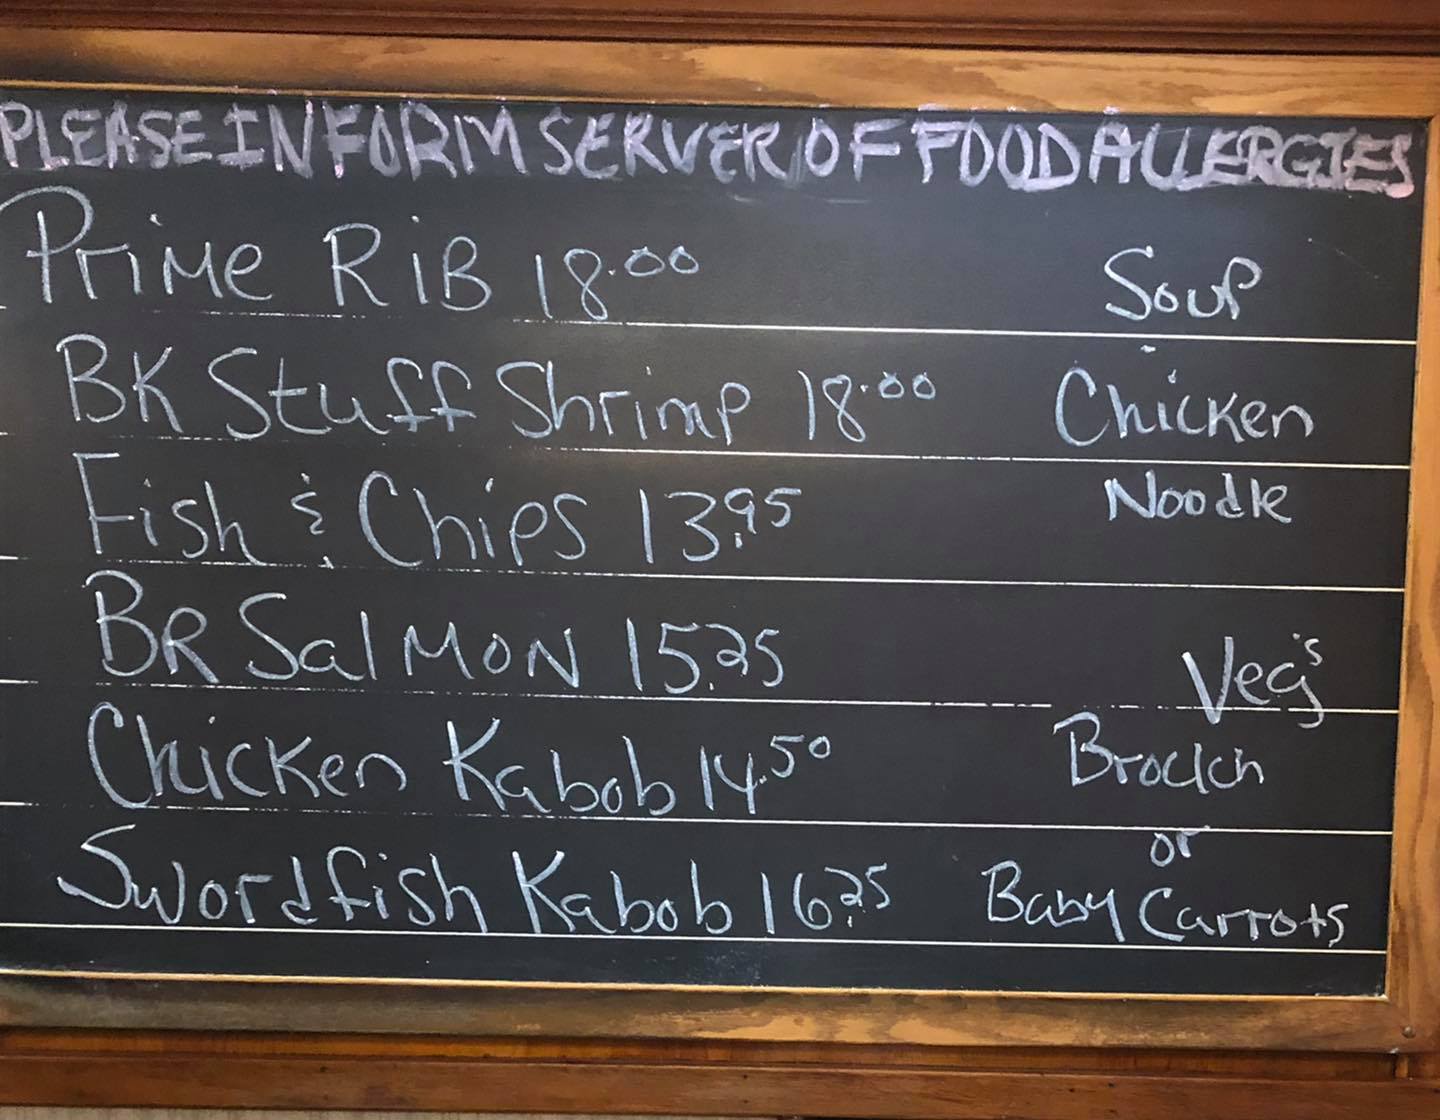 PLEASE INFORM SERVER OF FOOD ALLERGIES
Prime RiB 18.00
BK Stuff Shrimp 18.00
Fish & Chips 13.95
BR Salmon 15.25
Chicken Kabob 14.50
Swordfish Kabob 16.25
Soup
Chicken
Noodle
Veg's
or
Baby Carrots